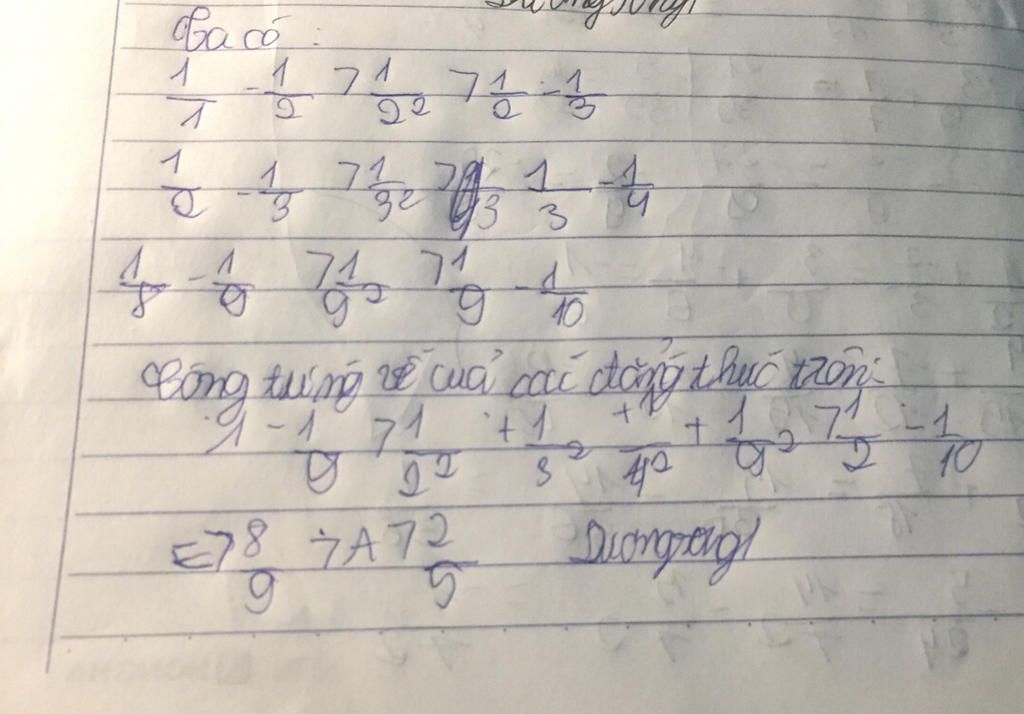 Duongsongl
Ta có :
1/1 - 1/2 > 1/2² > 1/2 - 1/3
1/2 - 1/3 > 1/3² > 1/3 - 1/4
1/8 - 1/9 > 1/9² > 1/9 - 1/10
Cộng từng vế của các đẳng thức trên:
1 - 1/9 > 1/2² + 1/3² + 1/4² + 1/9² > 1/2 - 1/10
<=> 8/9 > A > 2/5 Duongsongl